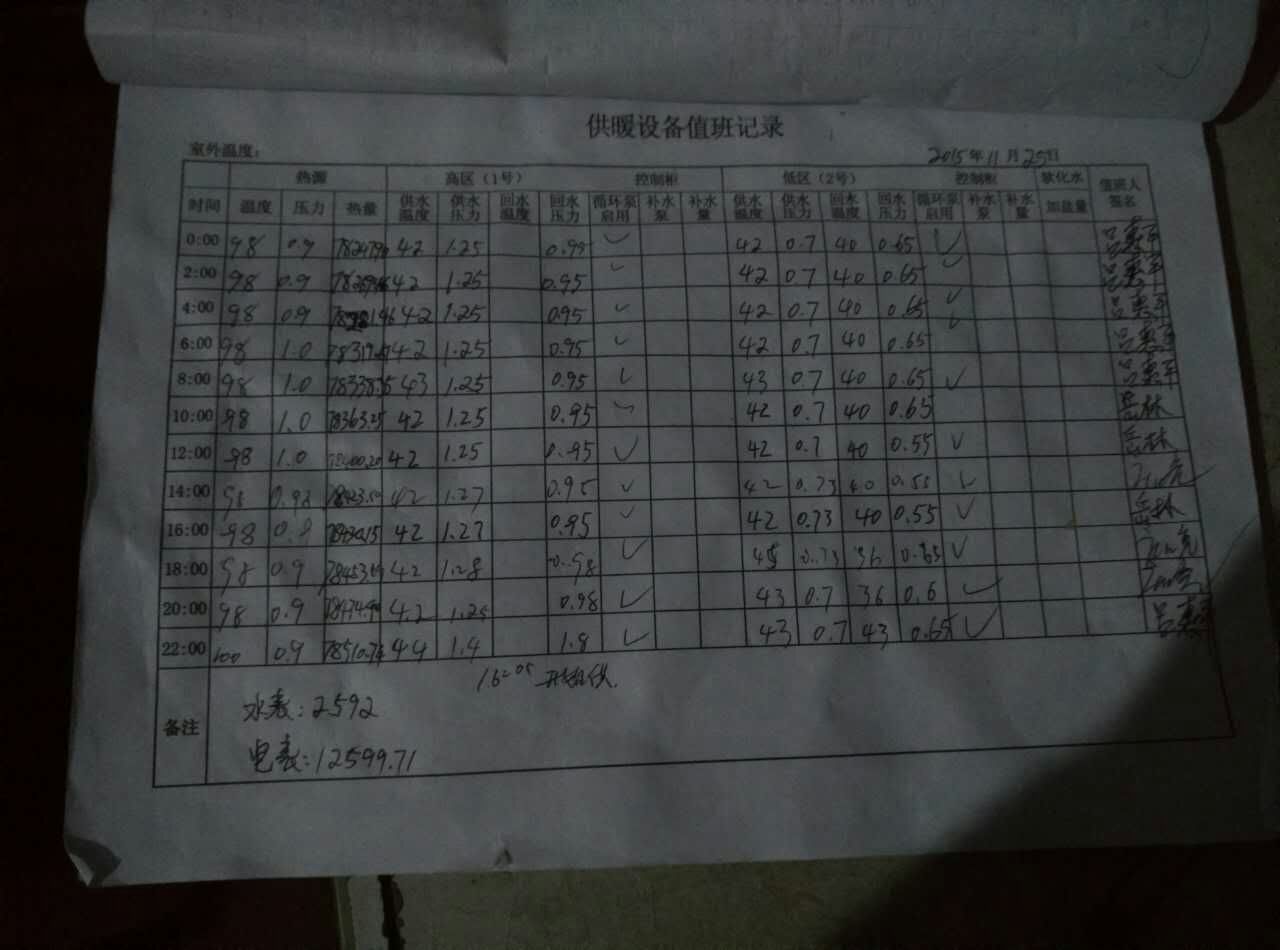 供暖设备值班记录
室外温度: 2015年11月25日
热源 高区(1号) 控制柜 低区(2号) 控制柜 软化水 值班人签名
时间 温度 压力 热量 供水温度 供水压力 回水温度 回水压力 循环泵启用 补水泵 补水量 供水温度 供水压力 回水温度 回水压力 循环泵启用 补水泵 补水量 加盐量
0:00 98 0.9 42 1.25 0.95 ✓ 42 0.7 40 0.65 ✓
2:00 98 0.9 42 1.25 0.95 ✓ 42 0.7 40 0.65 ✓
4:00 98 0.9 42 1.25 0.95 ✓ 42 0.7 40 0.65 ✓
6:00 98 1.0 42 1.25 0.95 ✓ 42 0.7 40 0.65 ✓
8:00 98 1.0 43 1.25 0.95 ✓ 43 0.7 40 0.65 ✓
10:00 98 1.0 78363.25 42 1.25 0.95 ✓ 42 0.7 40 0.65 岳林
12:00 98 1.0 42 1.25 0.95 ✓ 42 0.7 40 0.55 ✓ 岳林
14:00 98 42 1.27 0.95 ✓ 42 0.73 40 0.55 ✓
16:00 98 0.9 42 1.27 0.95 ✓ 42 0.73 40 0.55 ✓ 岳林
18:00 98 0.9 42 1.28 0.98 ✓ 0.73 36 0.65 ✓
20:00 98 0.9 78474.90 42 1.25 0.98 ✓ 43 0.7 36 0.6 ✓
22:00 100 0.9 78510.74 44 1.4 1.8 ✓ 43 0.7 43 0.65 ✓
备注
16:05 开始供.
水表:2592
电表:12599.71